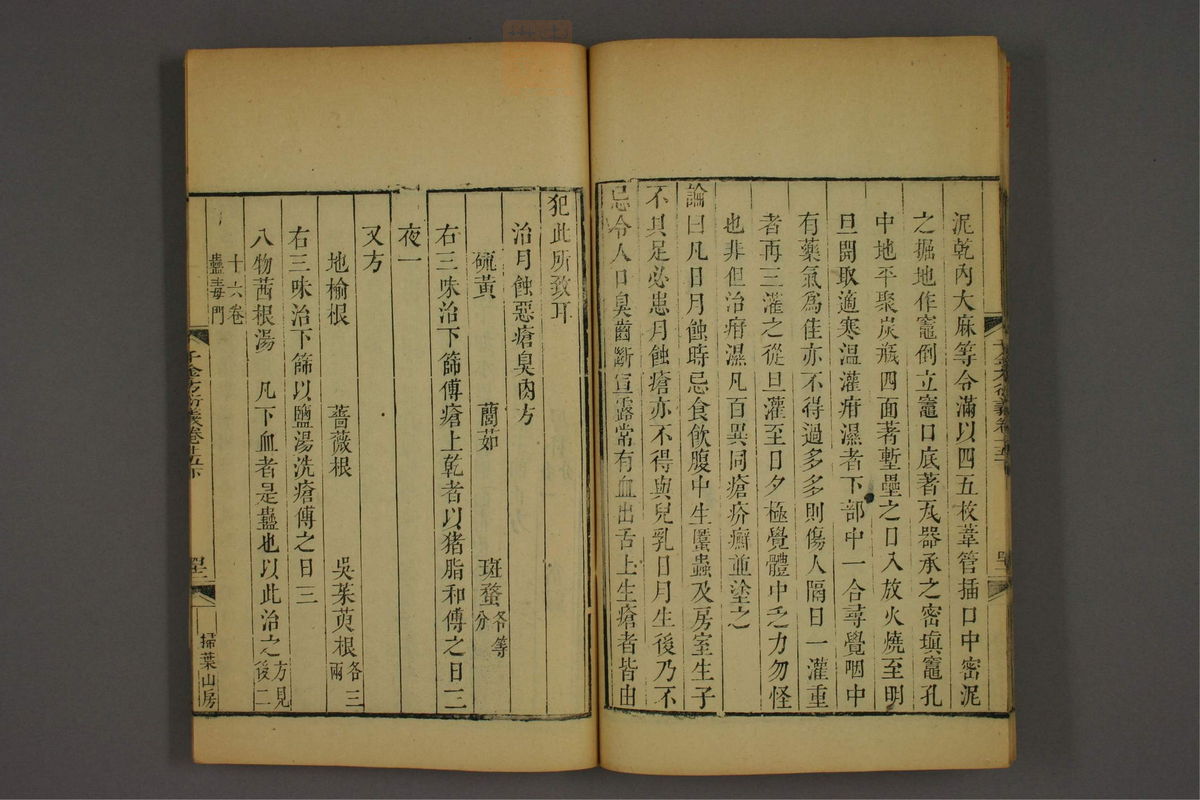 泥乾內大麻等令滿以四五枚葦管插口中密泥
之掘地作竈倒立竈口底著瓦器承之密填竈孔
中地平聚炭瓶四面著塹壘之日入放火燒至明
旦開取適寒溫灌疳濕者下部中一合尋覺咽中
有藥氣爲佳亦不得過多多則傷人隔日一灌重
者再三灌之從旦灌至日夕極覺體中乏力勿怪
也非但治疳濕凡百異同瘡疥癬並塗之
論曰凡日月蝕時忌食飲腹中生䘌蟲及房室生子
不具足必患月蝕瘡亦不得與兒乳日月生後乃不
忌令人口臭齒斷宣露常有血出舌上生瘡者皆由
犯此所致耳
治月蝕惡瘡臭肉方
硫黃 䕡茹 斑蝥各等分
右三味治下篩傅瘡上乾者以猪脂和傅之日三
夜一
又方
地榆根 薔薇根 吳茱萸根各三兩
右三味治下篩以鹽湯洗瘡傅之日三
八物茜根湯 凡下血者是蠱也以此治之方見後二
十六卷
蠱毒門
千金方衍義卷十五下
掃葉山房